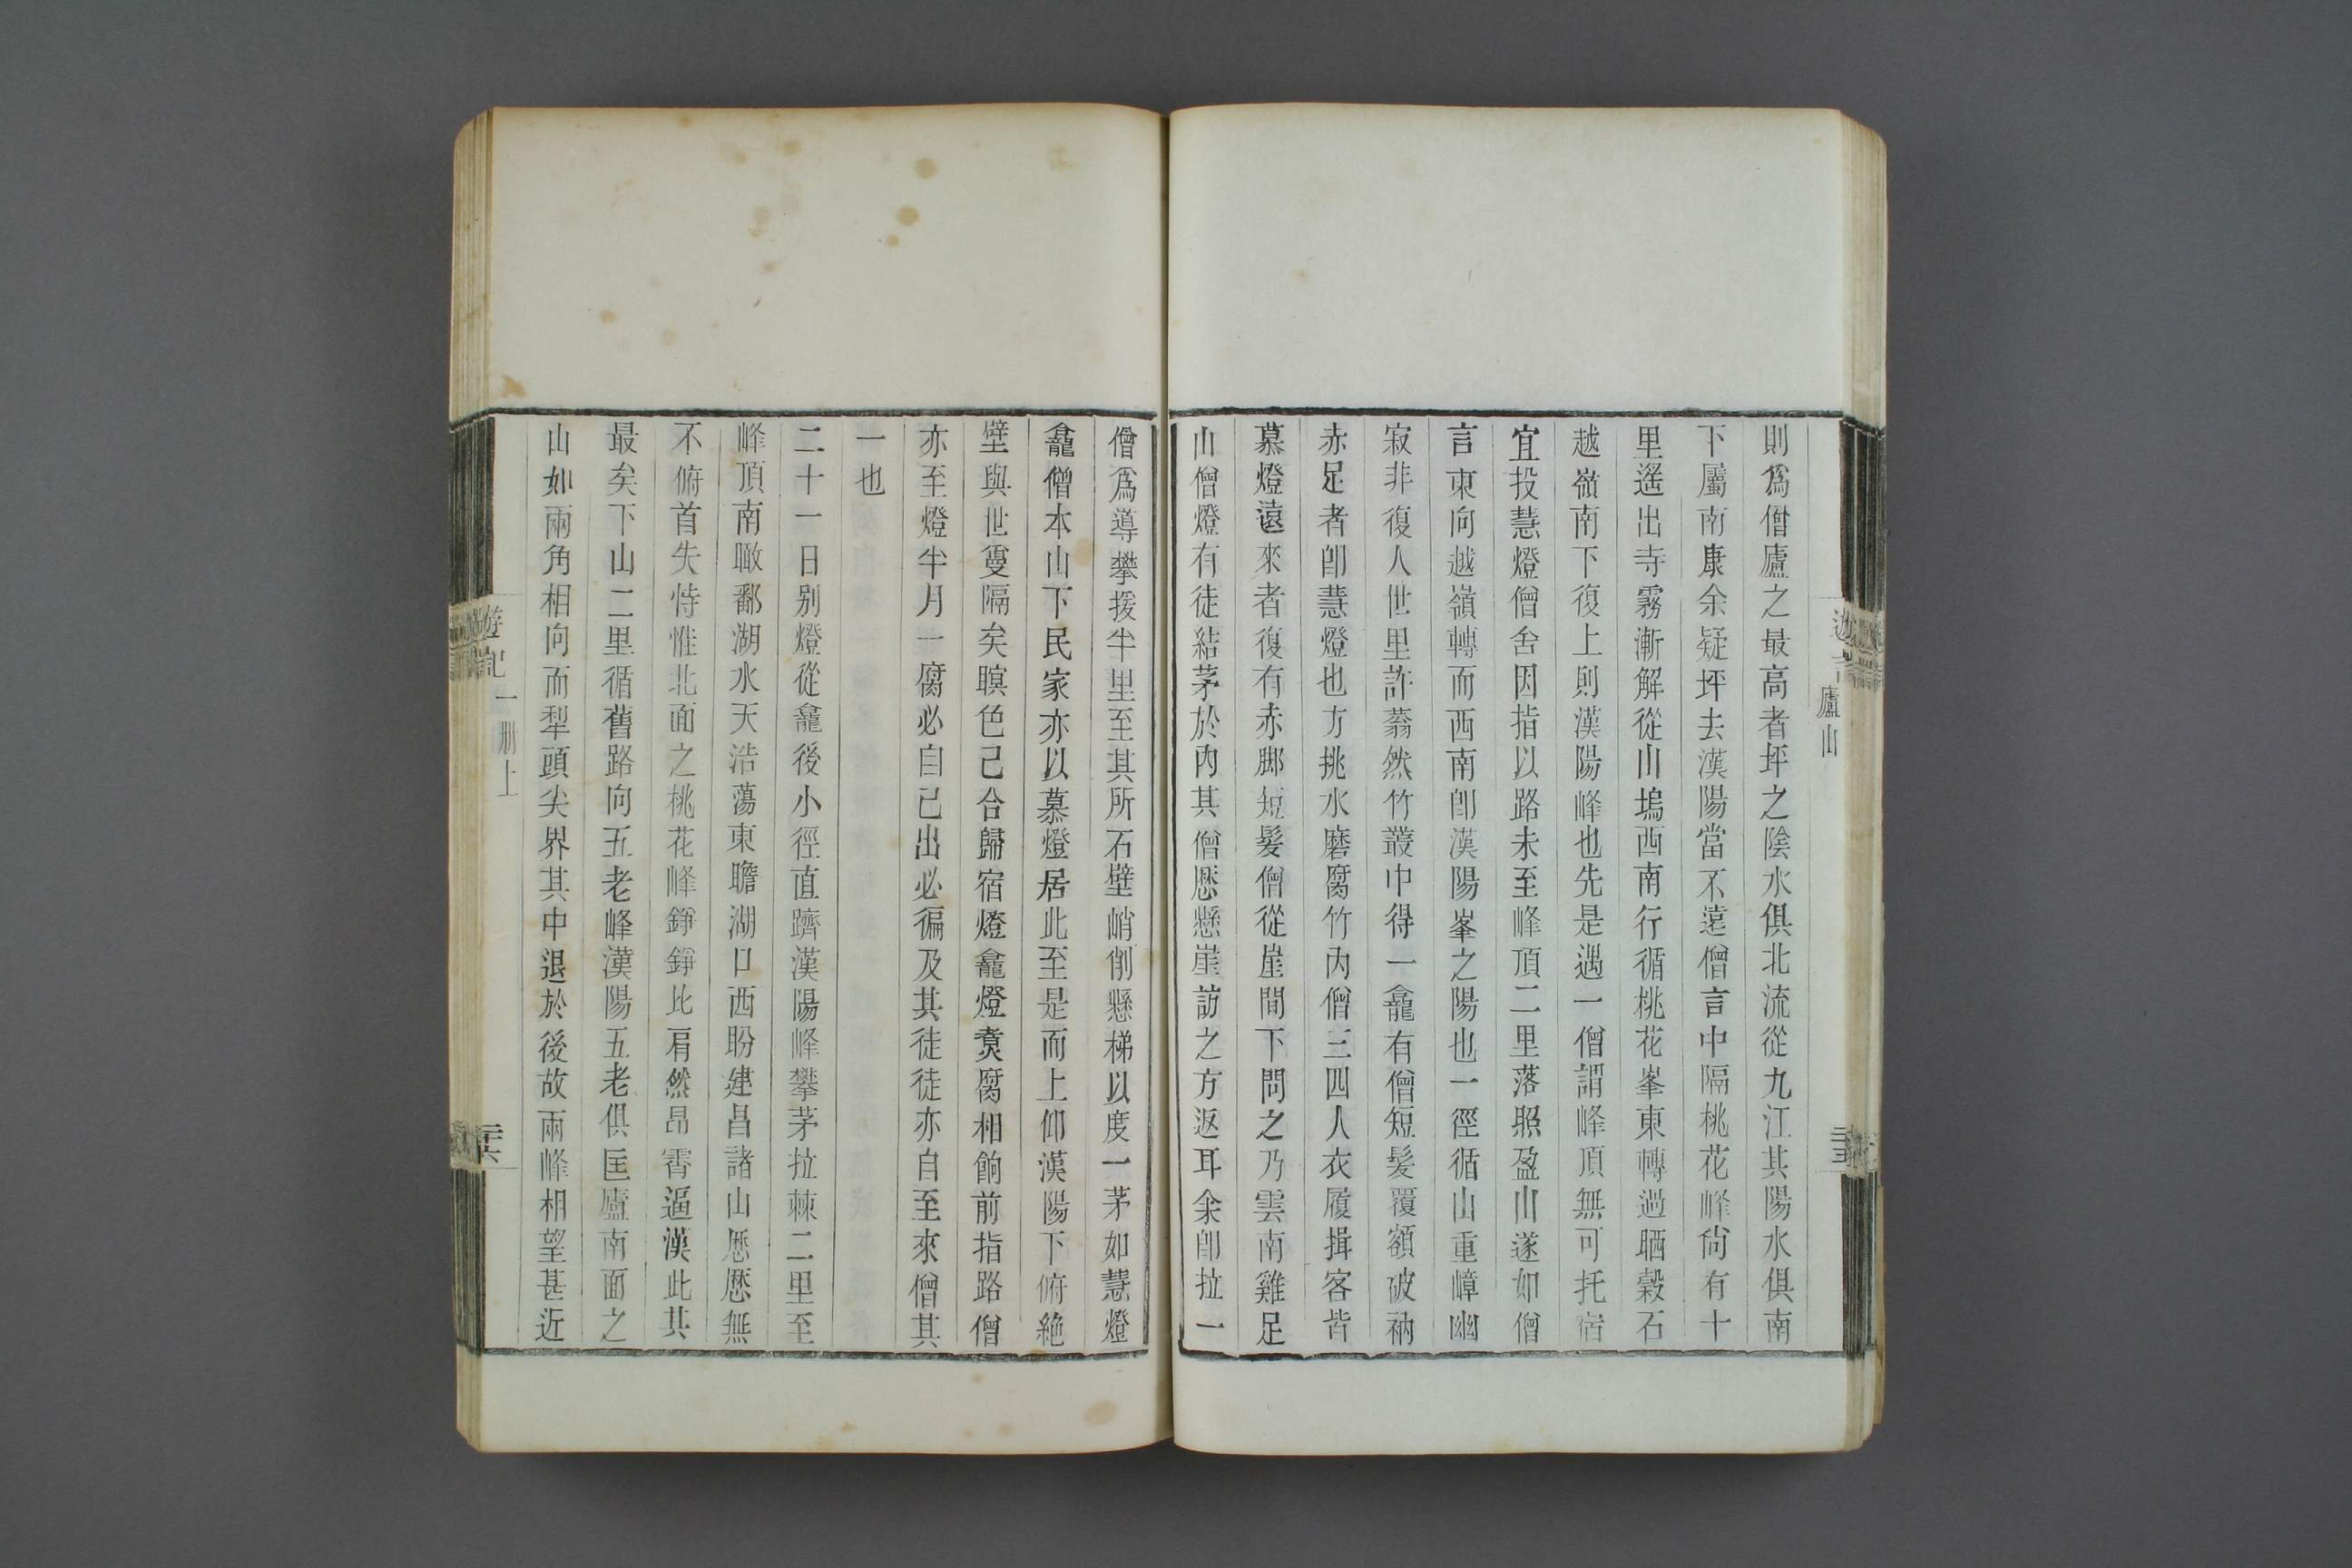 則爲僧廬之最高者坪之陰水俱北流從九江其陽水俱南
下屬南康余疑坪去漢陽當不遠僧言中隔桃花峰尙有十
里遙出寺霧漸解從山塢西南行循桃花峯東轉過晒穀石
越嶺南下復上則漢陽峰也先是遇一僧謂峰頂無可托宿
宜投慧燈僧舍因指以路未至峰頂二里落照盈山遂如僧
言東向越嶺轉而西南卽漢陽峯之陽也一徑循山重嶂幽
寂非復人世里許蓊然竹叢中得一龕有僧短髮覆額破衲
赤足者卽慧燈也方挑水磨腐竹內僧三四人衣履揖客皆
慕燈遠來者復有赤脚短髮僧從崖間下問之乃雲南雞足
山僧燈有徒結茅於內其僧歷懸崖訪之方返耳余卽拉一
僧爲導攀援半里至其所石壁峭削懸梯以度一茅如慧燈
龕僧本山下民家亦以慕燈居此至是而上仰漢陽下俯絶
壁與世敻隔矣暝色已合歸宿燈龕燈煑腐相餉前指路僧
亦至燈半月一腐必自己出必徧及其徒徒亦自至來僧其
一也
二十一日别燈從龕後小徑直躋漢陽峰攀茅拉棘二里至
峰頂南瞰鄱湖水天浩蕩東瞻湖口西盼建昌諸山歷歷無
不俯首失恃惟北面之桃花峰錚錚比肩然昂霄逼漢此其
最矣下山二里循舊路向五老峰漢陽五老俱匡廬南面之
山如兩角相向而犁頭尖界其中退於後故兩峰相望甚近
廬山
遊記
一册上